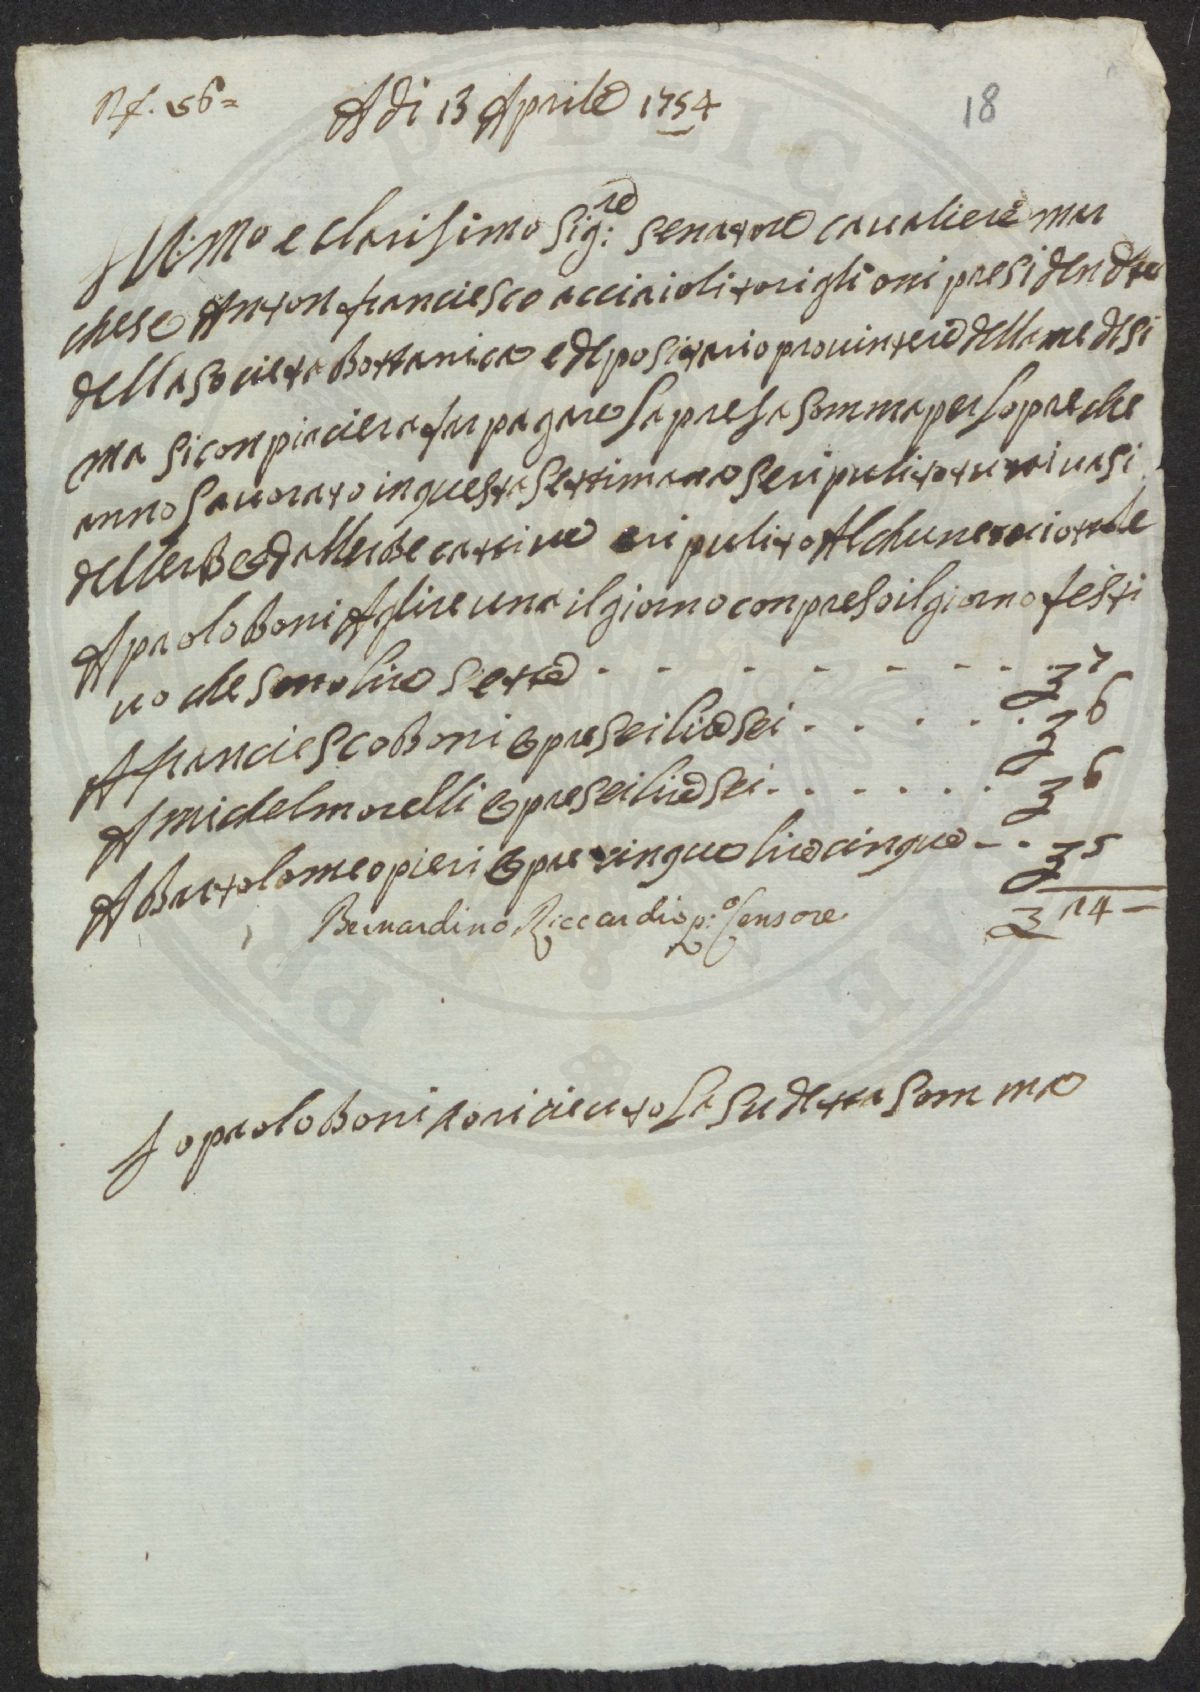 Nº. 56=
A di 13 Aprile 1754
18
Ill:mo e clarisimo Sig:re senatore caualiere mar
chese Anton franciesco acciaioli toriglioni presidendte
della societa Bottanica e depositario prouintere della medesi
ma si conpiaciera far pagare la presa somma per lopre che
anno lauorato in questa settimana se ripulito tutti uasi
dellerbe dallerbe cattiue e ripulito Alchune
A paolo Boni A lire una il giorno conpreso il giorno festi
uo che sono lire sette - - - - - - - - - 7
A franciesco Boni opre sei lire sei . . . . . . 6
A michel morelli opre sei lire sei . . . . . . . 6
A Bartolomeo pieri opre cinque lire cinque - - . 5
Bernardino Riccardi p:o Censore
24 —
Io paolo Boni o riceuto la sudetta somma